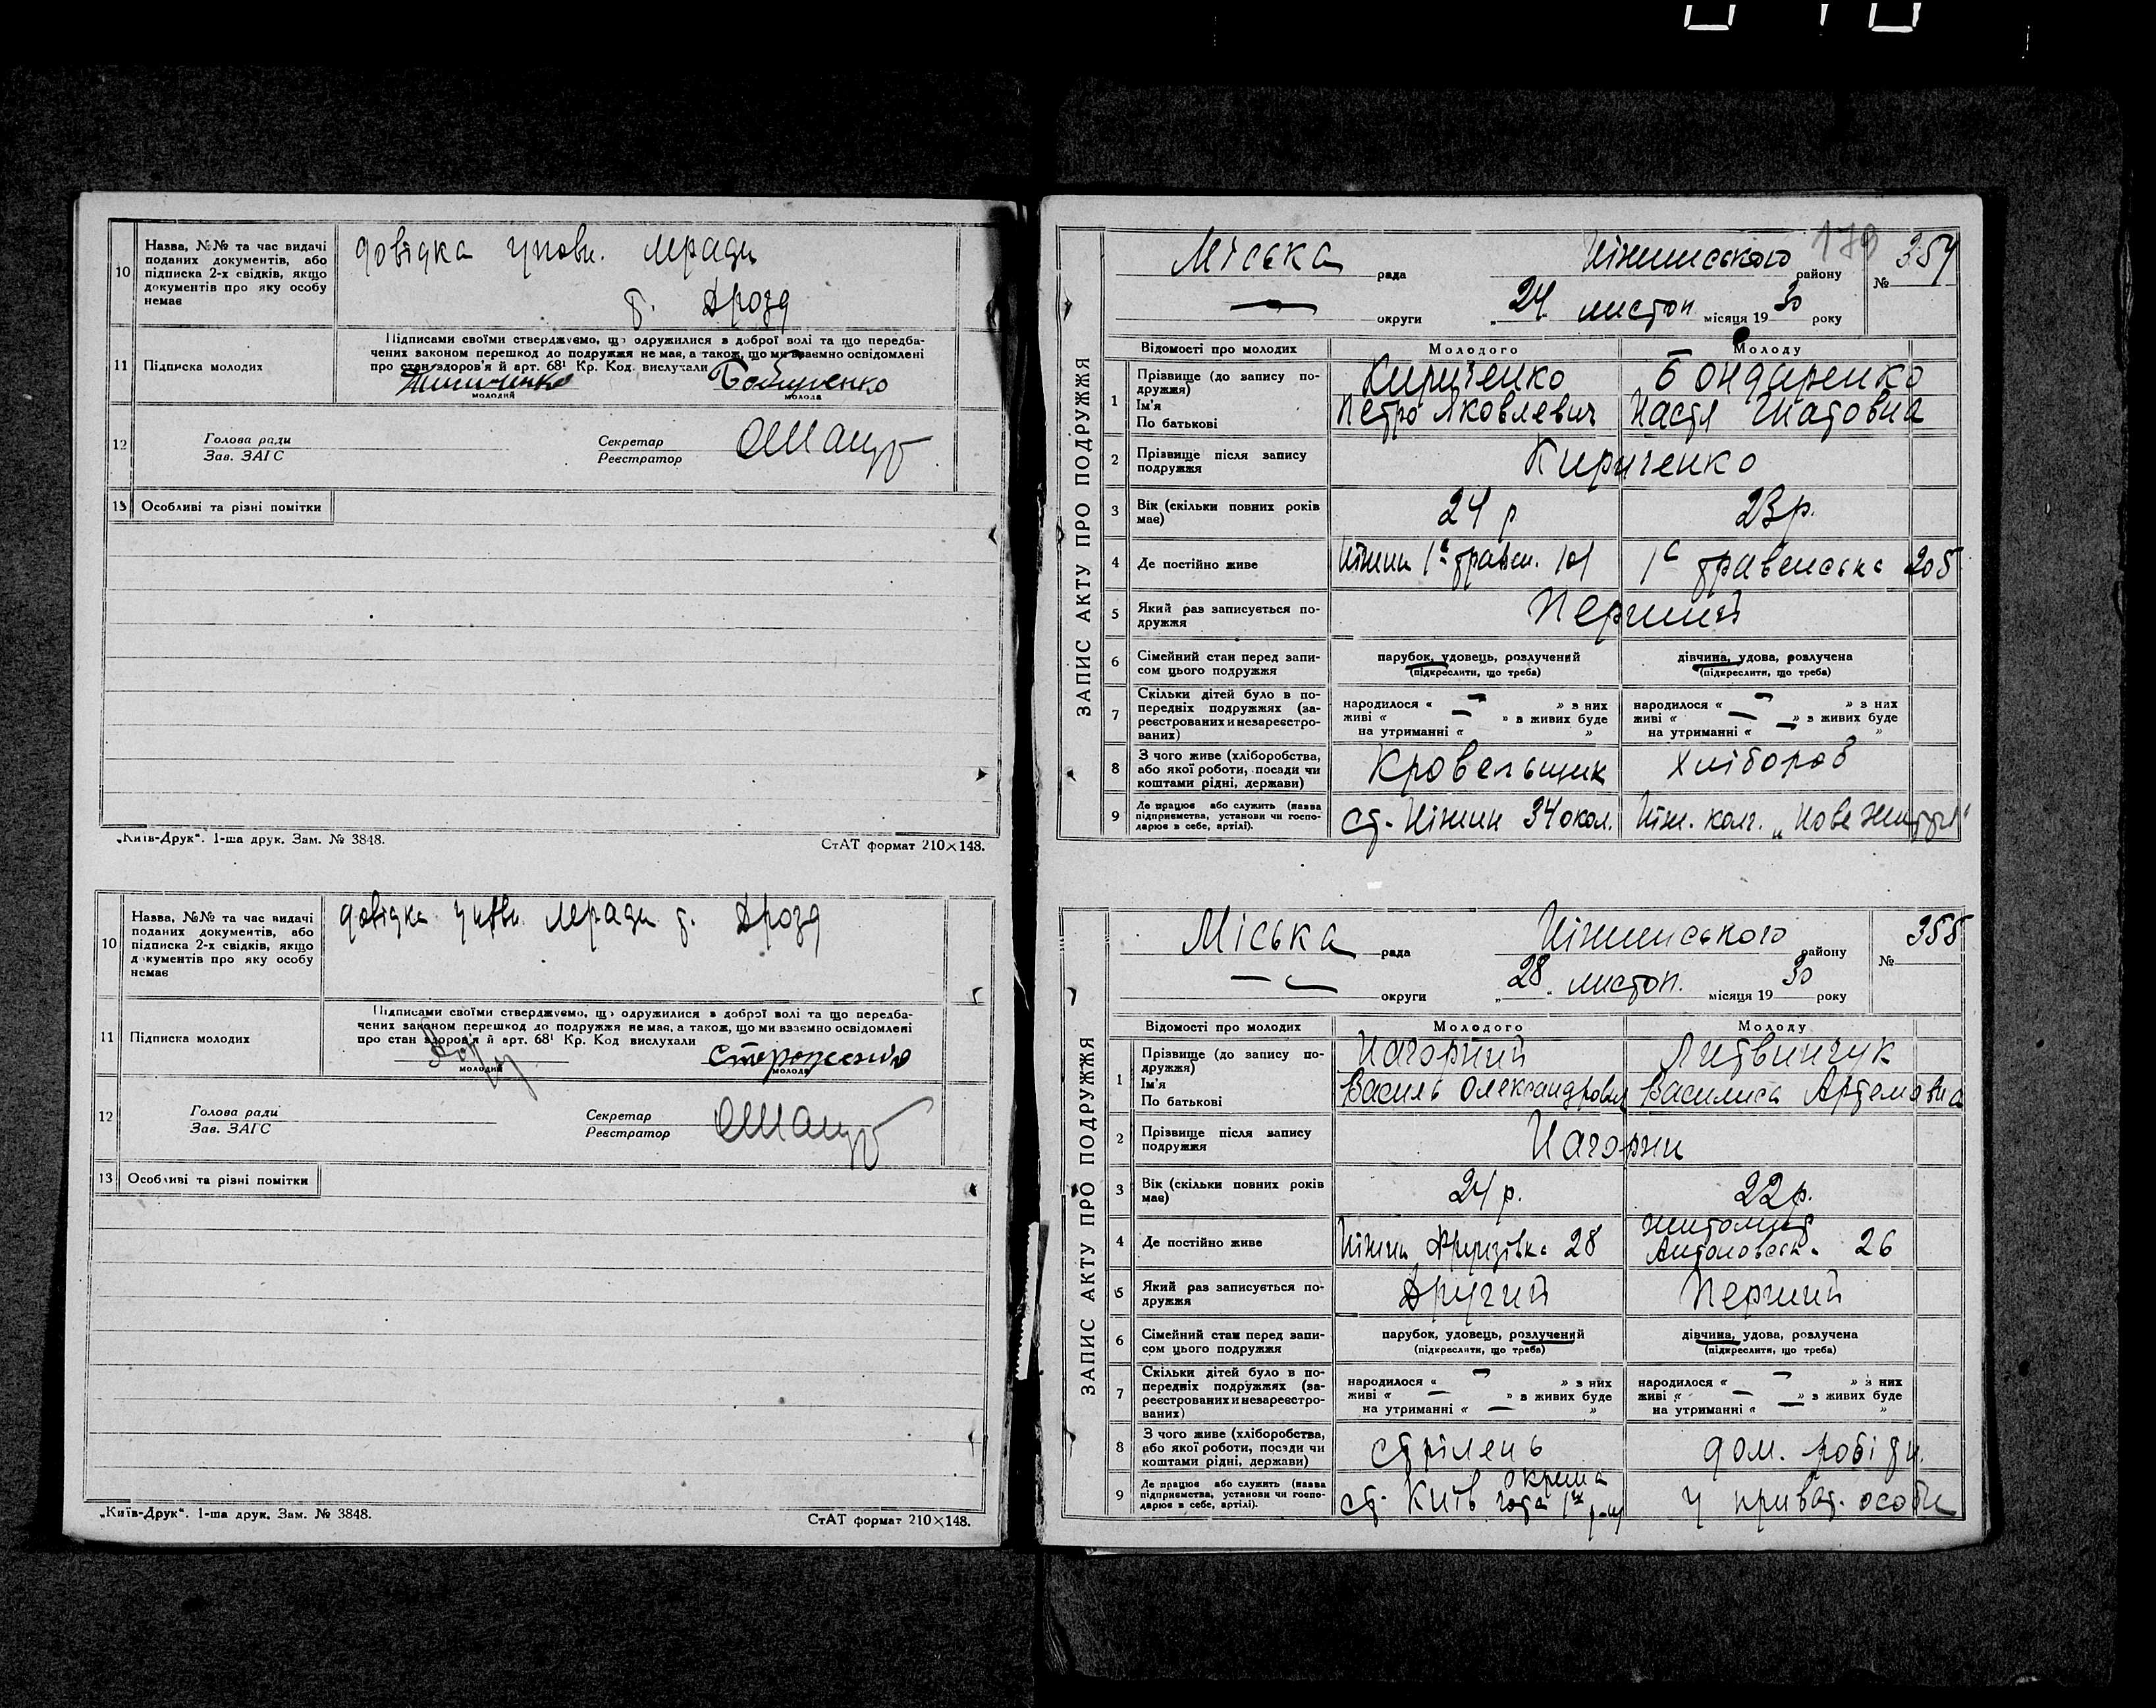 10
Назва, №№ та час видачі
поданих документів, або
підписка 2-х свідків, якщо
документів про яку особу
немає
довідка уповн. м/ради
т. Дрозд
11
Підписка молодих
Підписами своїми стверджуємо, що одружилися з доброї волі та що передба-
чених законом перешкод до подружжя не має, а також, що ми взаємно освідомлені
про стан здоров'я й арт. 68¹ Кр. Код. вислухали
молодий
молода
12
Голова ради
Зав. ЗАГС
Секретар
Реєстратор
13
Особливі та різні помітки
„Київ-Друк“. 1-ша друк. Зам. № 3848.
СтАТ формат 210×148.
10
Назва, №№ та час видачі
поданих документів, або
підписка 2-х свідків, якщо
документів про яку особу
немає
довідка уповн. м/ради т. Дрозд
11
Підписка молодих
Підписами своїми стверджуємо, що одружилися з доброї волі та що передба-
чених законом перешкод до подружжя не має, а також, що ми взаємно освідомлені
про стан здоров'я й арт. 68¹ Кр. Код вислухали
молодий
молода
12
Голова ради
Зав. ЗАГС
Секретар
Реєстратор
13
Особливі та різні помітки
„Київ-Друк“. 1-ша друк. Зам. № 3848.
СтАТ формат 210×148.
179
ЗАПИС АКТУ ПРО ПОДРУЖЖЯ
Міська рада Ніжинського району № 354
округи „24 листоп. місяця 1930 року
Відомості про молодих
Молодого
Молоду
1
Прізвище (до запису по-
дружжя)
Ім'я
По батькові
Кириченко
Петро Яковлевич
Бондаренко
Настя Гнатовна
2
Прізвище після запису
подружжя
Кириченко
3
Вік (скільки повних років
має)
24 р
23 р.
4
Де постійно живе
Ніжин 1ᵃ травен. 101
1ᵃ травенська 205
5
Який раз записується по-
дружжя
Перший
6
Сімейний стан перед запи-
сом цього подружжя
парубок, удовець, розлучений
(підкреслити, що треба)
дівчина, удова, розлучена
(підкреслити, що треба)
7
Скільки дітей було в по-
передніх подружжях (за-
реєстрованих и незареєстро-
ваних)
народилося « – » з них
живі « – » в живих буде
на утриманні « »
народилося « – » з них
живі « – » в живих буде
на утриманні « – »
8
З чого живе (хліборобства,
або якої роботи, посади чи
коштами рідні, держави)
Кровельщик
Хлібороб
9
Де працює або служить (назва
підприємства, установи чи госпо-
дарює в себе, артілі).
ст. Ніжин 34 окол.
Ніж. колг. „Нове життя“
ЗАПИС АКТУ ПРО ПОДРУЖЖЯ
Міська рада Ніжинського району № 355
округи „28 листоп. місяця 1930 року
Відомості про молодих
Молодого
Молоду
1
Прізвище (до запису по-
дружжя)
Ім'я
По батькові
Нагорний
Василь Олександрович
Литвинчук
Василиса Артемовна
2
Прізвище після запису
подружжя
Нагорни
3
Вік (скільки повних років
має)
24 р.
22 р.
4
Де постійно живе
Ніжин Фрунзівка 28
Житомир
26
5
Який раз записується по-
дружжя
Другий
Перший
6
Сімейний стан перед запи-
сом цього подружжя
парубок, удовець, розлучений
(підкреслити, що треба)
дівчина, удова, розлучена
(підкреслити, що треба)
7
Скільки дітей було в по-
передніх подружжях (за-
реєстрованих и незареєстро-
ваних)
народилося « – » з них
живі « – » в живих буде
на утриманні « – »
народилося « – » з них
живі « – » в живих буде
на утриманні « – »
8
З чого живе (хліборобства,
або якої роботи, посади чи
коштами рідні, держави)
стрілець
дом. робітн.
9
Де працює або служить (назва
підприємства, установи чи госпо-
дарює в себе, артілі).
окрема
ст. Київ
у приват. особи